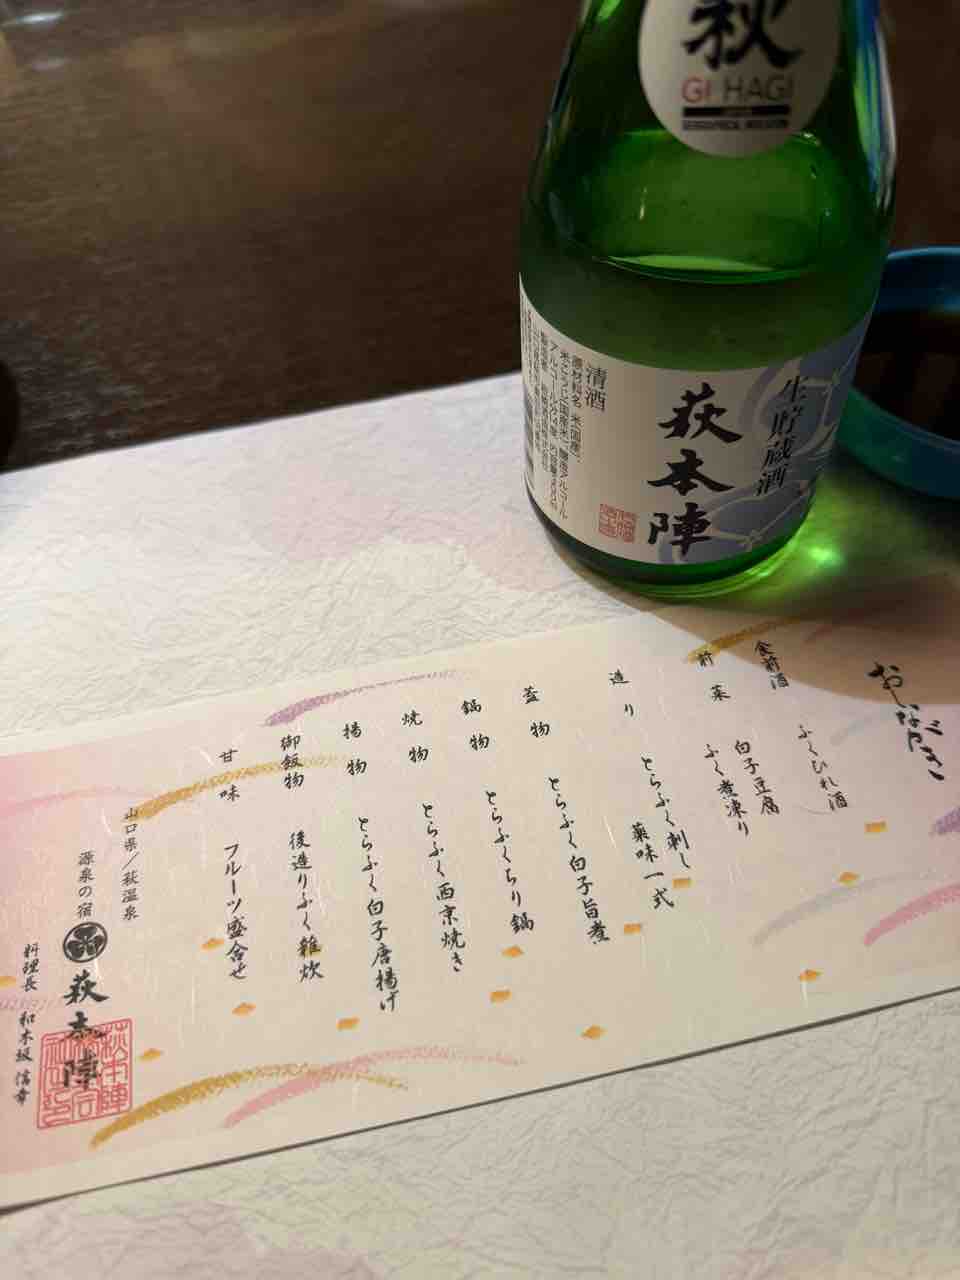 萩
GI HAGI
生貯蔵酒
萩本陣
清酒
原材料名 米(国産)、
米こうじ(国産米)、醸造アルコール
おしながき
食前酒 ふくひれ酒
前菜 白子豆腐
ふく煮凍り
造り とらふく刺し
薬味一式
蓋物 とらふく白子旨煮
鍋物 とらふくちり鍋
焼物 とらふく西京焼き
揚物 とらふく白子唐揚げ
御飯物 後造りふく雑炊
甘味 フルーツ盛合せ
山口県/萩温泉
源泉の宿 萩本陣
料理長 和木坂 信幸